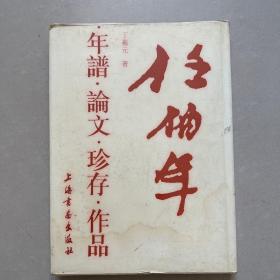 任伯年
丁羲元 著
·年譜·論文·珍存·作品
上海書畫出版社